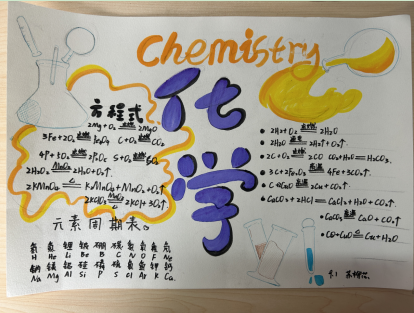 Chemistry
化学
方程式
2Mg+O₂ 点燃 2MgO
3Fe+2O₂ 点燃 Fe₃O₄ C+O₂ 点燃 CO₂
4P+5O₂ 点燃 2P₂O₅ S+O₂ 点燃 SO₂
2H₂O₂ MnO₂ 2H₂O+O₂↑
2KMnO₄ △ K₂MnO₄+MnO₂+O₂↑
2KClO₃ MnO₂ △ 2KCl+3O₂↑
元素周期表。
氢 氦 锂 铍 硼 碳 氮 氧 氟 氖
H He Li Be B C N O F Ne
钠 镁 铝 硅 磷 硫 氯 氩 钾 钙
Na Mg Al Si P S Cl Ar K Ca
2H₂+O₂ 点燃 2H₂O
2H₂O 2H₂↑+O₂↑
2C+O₂ 点燃 2CO CO₂+H₂O=H₂CO₃
3C+2Fe₂O₃ 高温 4Fe+3CO₂↑
C+2CuO 高温 2Cu+CO₂↑
CaCO₃+2HCl=CaCl₂+H₂O+CO₂↑
CaCO₃ 高温 CaO+CO₂↑
CO+CuO △ Cu+H₂O